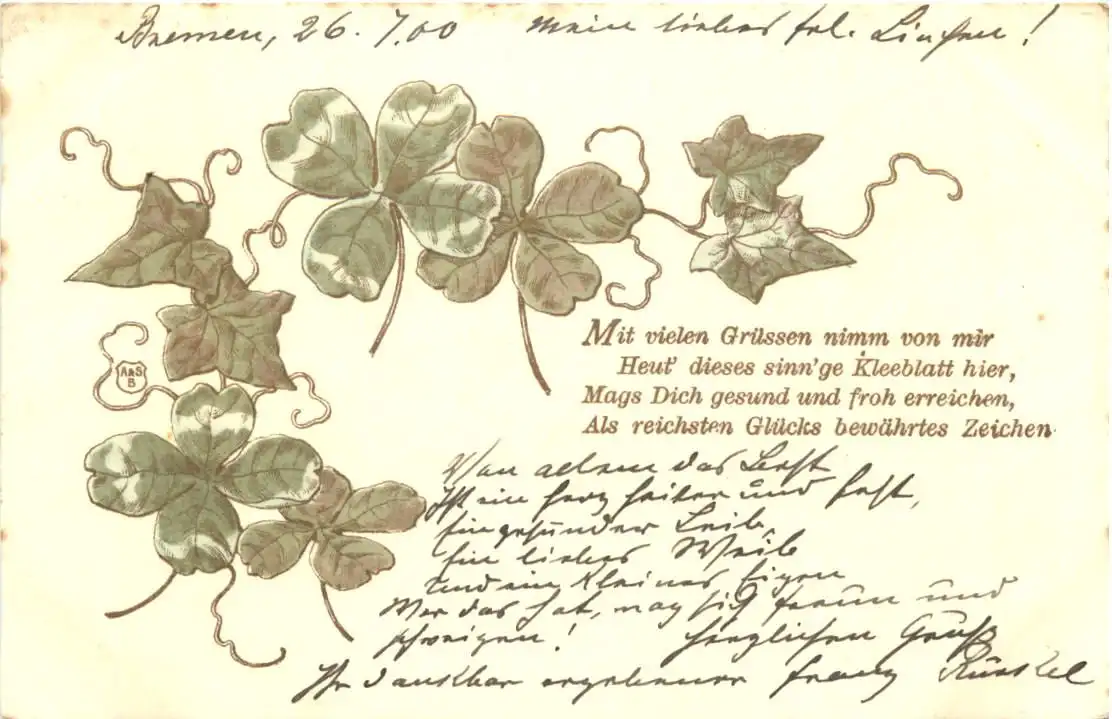 Bremen, 26. 7.00 Mein liebes Frl. Linchen!
Mit vielen Grüssen nimm von mir
Heut' dieses sinn'ge Kleeblatt hier,
Mags Dich gesund und froh erreichen,
Als reichsten Glücks bewährtes Zeichen
A&S
B
Von allem das Best
Ist ein Herz heiter und fest,
Ein gesunder Leib,
Ein liebes Weib
Und ein kleines Eigen
Wer das hat, mag sich freun und
schweigen! Herzlichen Gruß
Ihr dankbar ergebener Franz